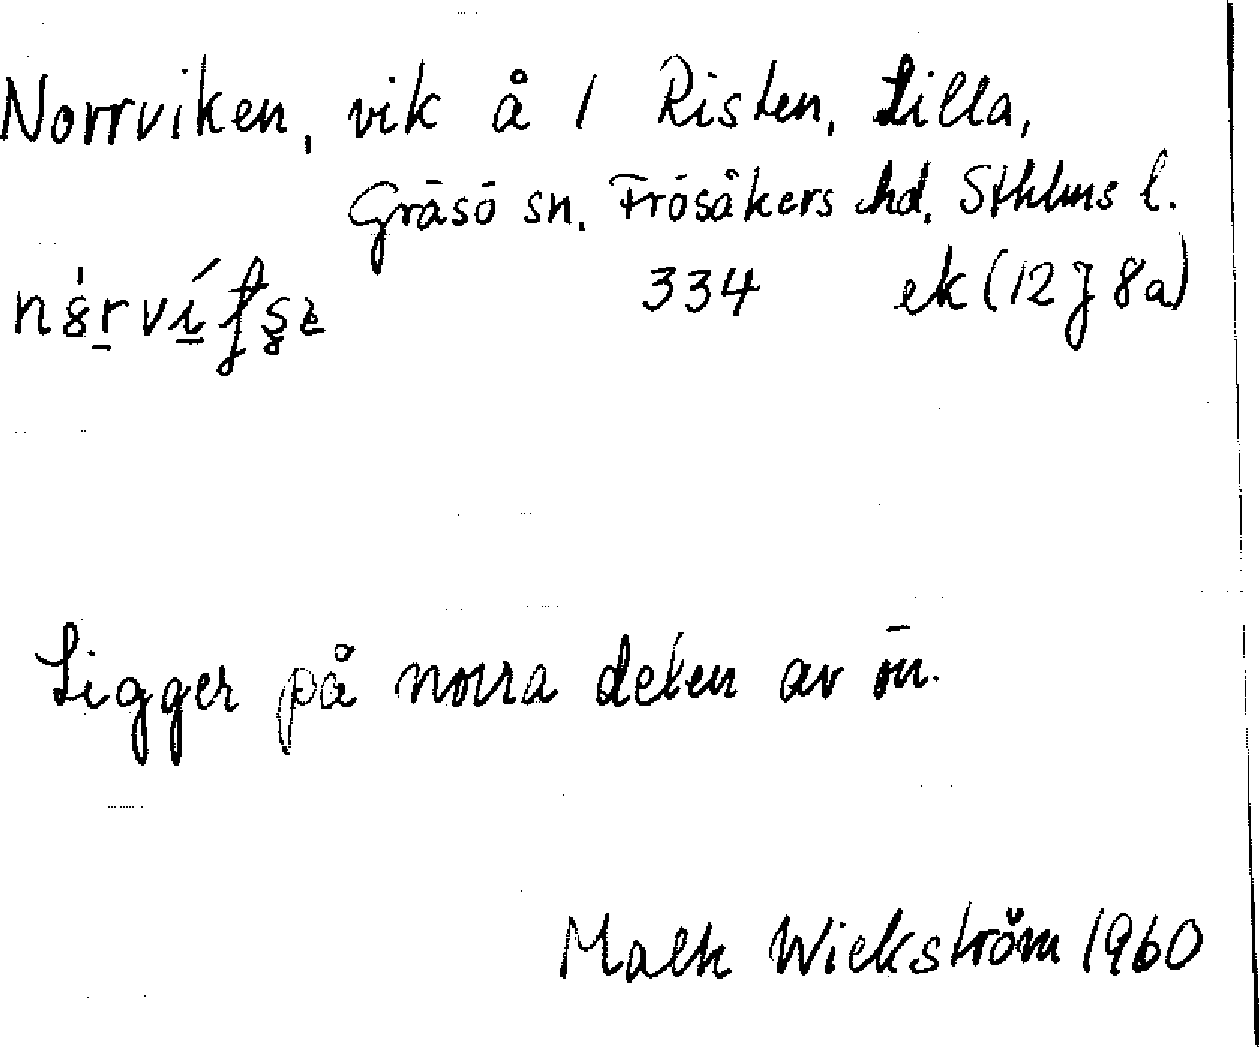 Norrviken, vik å 1 Risten, Lilla,
Gräsö sn. Frösåkers hd. Sthlms l.
334 ek (12J 8a)
Ligger på norra delen av ön.
Wickström 1960